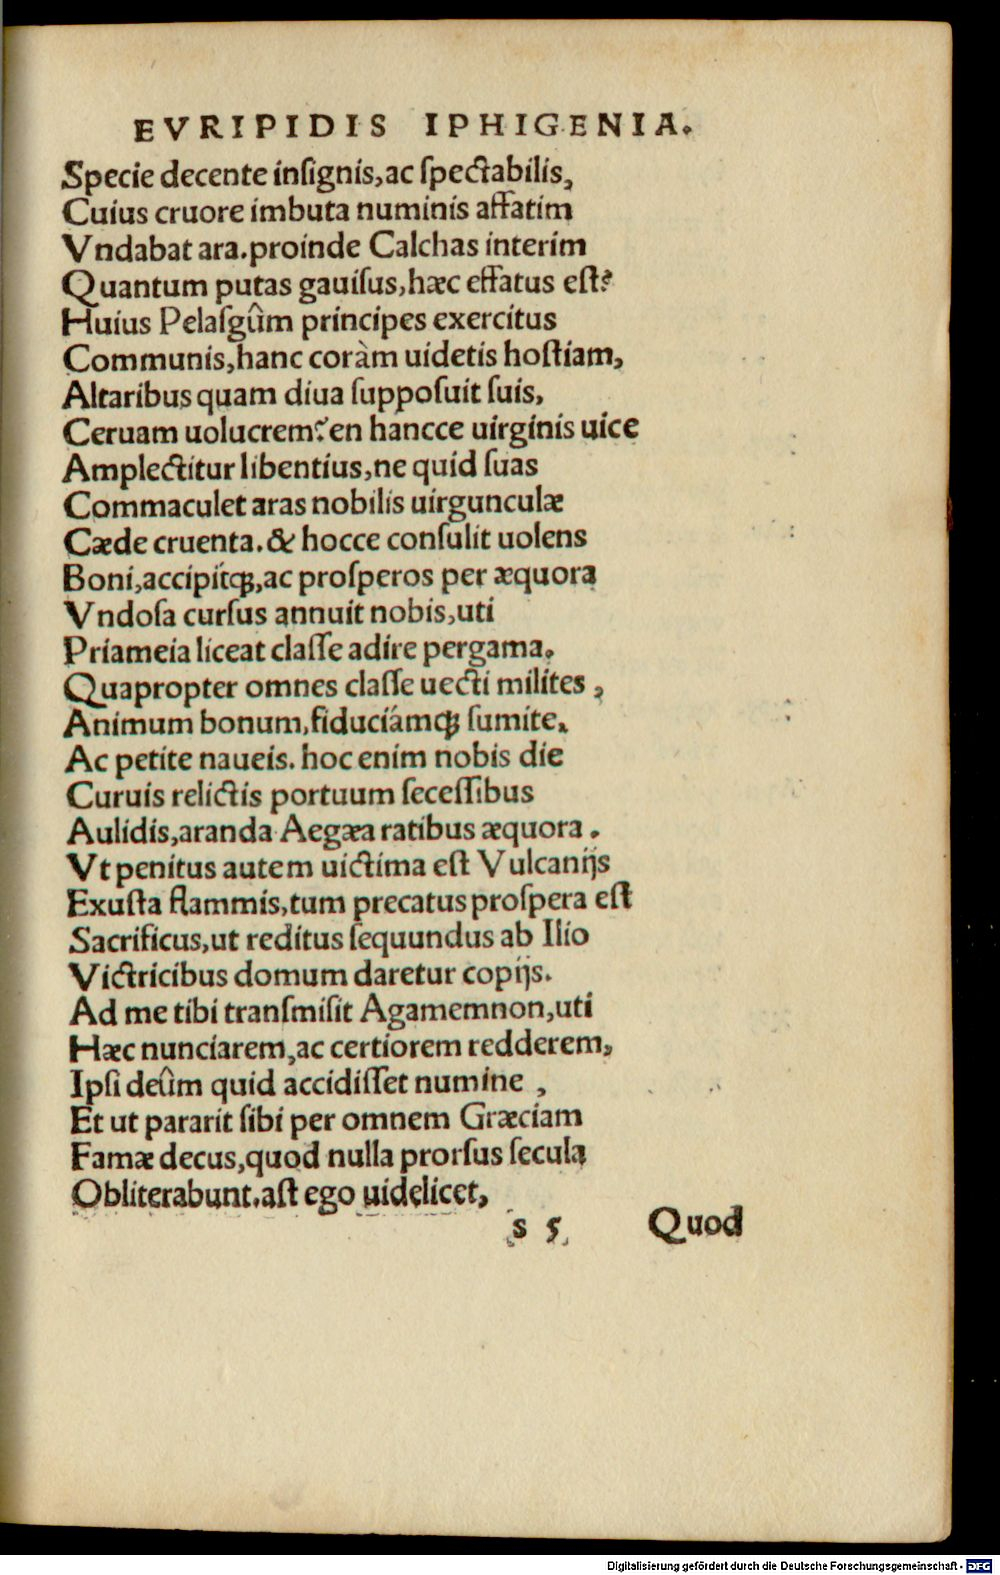 EVRIPIDIS IPHIGENIA.
Specie decente inſignis, ac ſpectabilis,
Cuius cruore imbuta numinis affatim
Vndabat ara. proinde Calchas interim
Quantum putas gauiſus, hæc effatus eſt?
Huius Pelaſgûm principes exercitus
Communis, hanc coràm uidetis hoſtiam,
Altaribus quam diua ſuppoſuit ſuis,
Ceruam uolucrem? en hancce uirginis uice
Amplectitur libentius, ne quid ſuas
Commaculet aras nobilis uirgunculæ
Cæde cruenta. & hocce conſulit uolens
Boni, accipitꝗ, ac proſperos per æquora
Vndoſa curſus annuit nobis, uti
Priameia liceat claſſe adire pergama.
Quapropter omnes claſſe uecti milites,
Animum bonum, fiduciámꝗ ſumite.
Ac petite naueis. hoc enim nobis die
Curuis relictis portuum ſeceſſibus
Aulidis, aranda Aegæa ratibus æquora.
Vt penitus autem uictima eſt Vulcanijs
Exuſta flammis, tum precatus proſpera eſt
Sacrificus, ut reditus ſequundus ab Ilio
Victricibus domum daretur copijs.
Ad me tibi tranſmiſit Agamemnon, uti
Hæc nunciarem, ac certiorem redderem,
Ipſi deûm quid accidiſſet numine,
Et ut pararit ſibi per omnem Græciam
Famæ decus, quod nulla prorſus ſecula
Obliterabunt. aſt ego uidelicet,
s 5 Quod
Digitalisierung gefördert durch die Deutsche Forschungsgemeinschaft - DFG